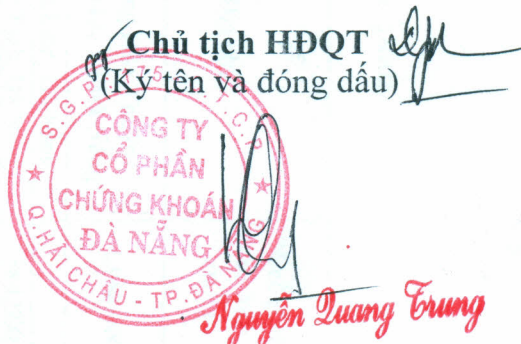 Chủ tịch HĐQT
(Ký tên và đóng dấu)
CÔNG TY
CỔ PHẦN
CHỨNG KHOÁN
ĐÀ NẴNG
Q.HẢI CHÂU - TP.ĐÀ NẴNG
Nguyễn Quang Trung